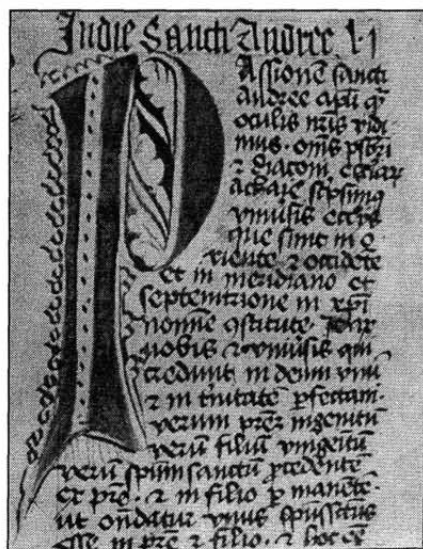 In die Sancti Andree l. i
PAssionē sancti
Andree apłi qᷓ
oculis nr̄is vidi
mus. om̄s pѕbrī
⁊ diaconi eccliaꝝ
achaie scͥpsimꝰ
vniūsis eccłijs
que sunt in o
riente ⁊ occidēte
et in meridiano et
septemtrione in xp̄i
nomine ꝯstitute. pax
nobis ⁊ vniūsis qui
credunt in deum vnū
⁊ in t̓nitatē ꝑfectam.
verum pr̄ez ingenitū
verū filiū vnigeitū
verū spm̄ sanctū ꝓcedentē
ex pr̄e. ⁊ in filio ꝑmanētē.
ut on̄datur vnus sp̄us sctūs
esse in pr̄e ⁊ filio. ⁊ hoc eē